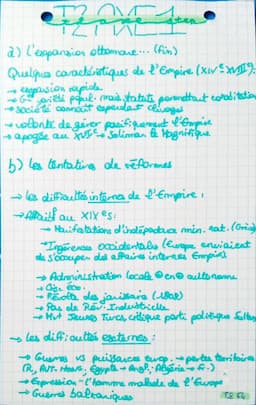 T2 AXE 1
a) L'expansion ottomane... (fin)
Quelques caractéristiques de l'Empire (XIVe XVIIIe):
→ expansion rapide
→ Gde variété popul. mais statuts permettant cohabitation
→ société connaît cependant clivages
→ volonté de gérer pacifiquement l'Empire
→ apogée au XVIe → Soliman le Magnifique
b) Les tentatives de réformes
→ les difficultés internes de l'Empire:
→ Affaibli au XIXe s:
→ Manifestations d'indépendance min. nat. (Grèce)
→ Ingérences occidentales (Europe enviaient
de s'occuper des affaires internes Empire)
→ Administration locale autonome
→ Cis. éco.
→ Révolte des janissaires (1826)
→ Pas de Rév. Industrielle
→ Mvt Jeunes Turcs critique parti politique Sultan
→ Les difficultés externes:
→ Guerres VS puissances europ. → pertes territoires
(R, Aut-Hong, Égypte → Angl, Algérie → Fr.)
→ Expression "l'homme malade de l'Europe
→ Guerres Balkaniques